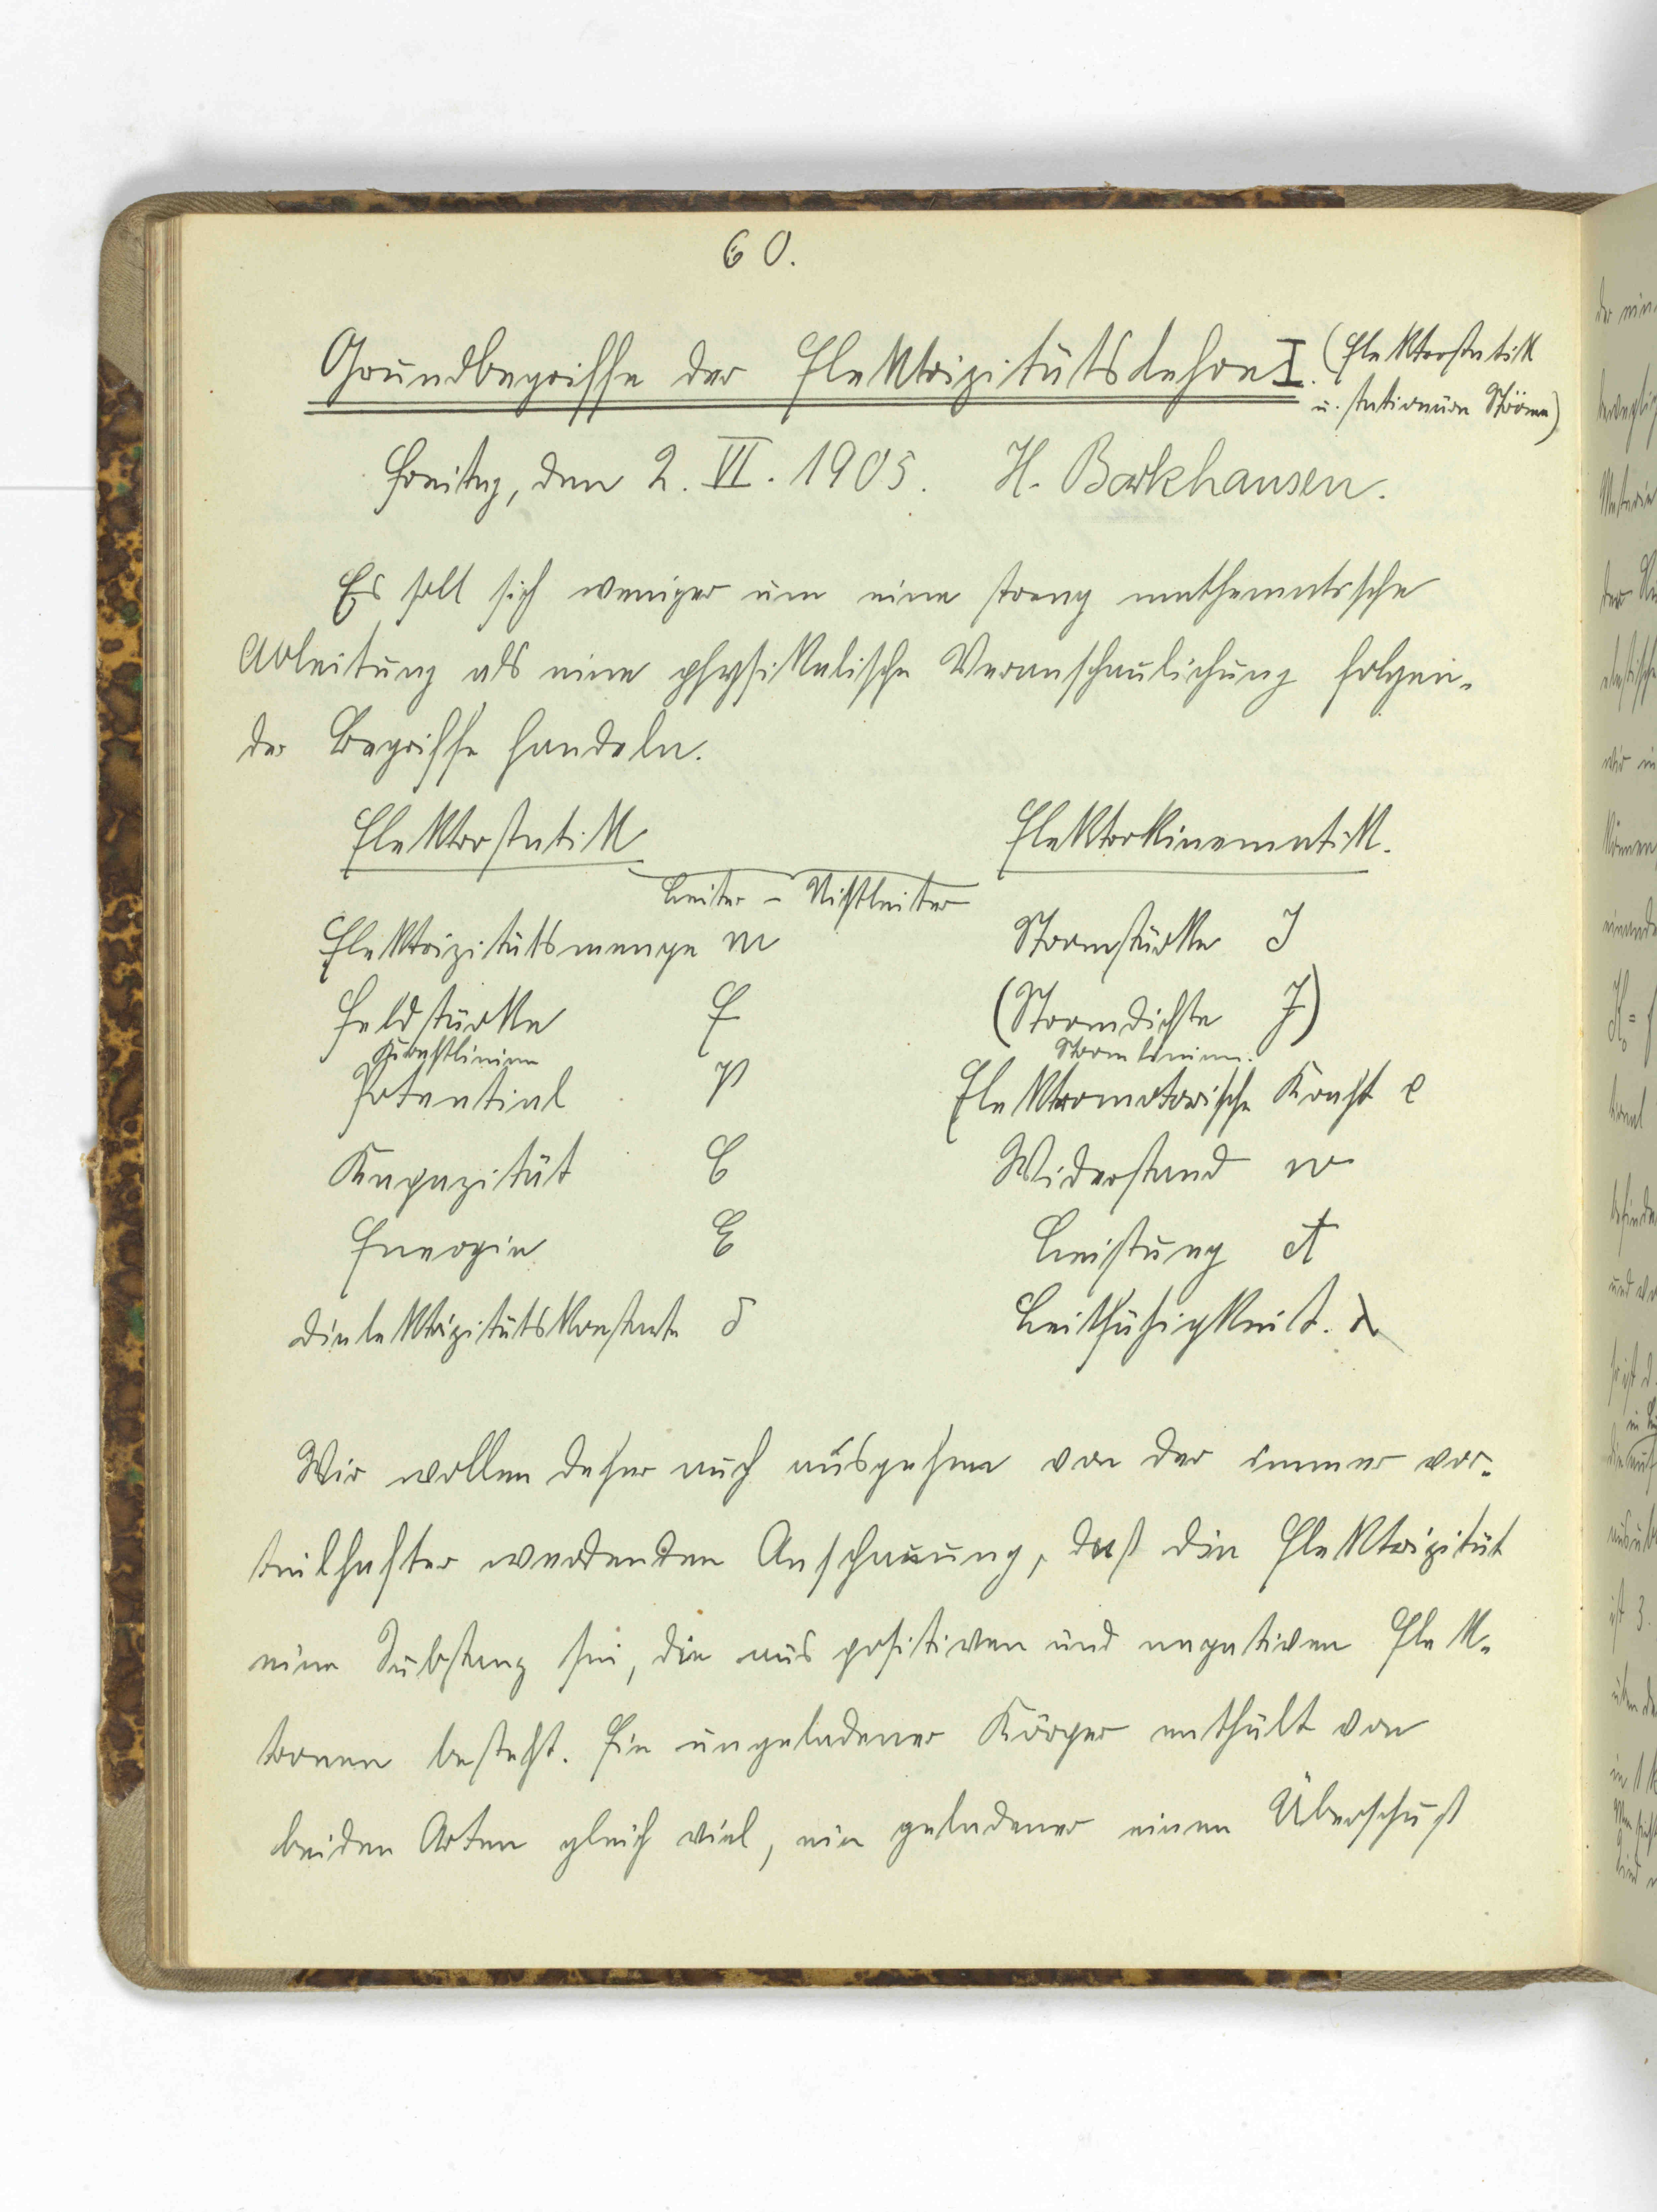 60.
Grundbegriffe der Elektrizitätslehre I. (Elektrostatik
u. stationäre Ströme)
Freitag, den 2. VI. 1905. H. Barkhausen.
Es soll sich weniger um eine streng mathematische
Ableitung als eine physikalische Veranschaulichung folgen-
der Begriffe handeln.
Elektrostatik Elektrokinematik.
Leiter - Nichtleiter
Elektrizitätsmenge m Stromstärke J
Feldstärke F (Stromdichte J)
Kraftlinien Stromlinien.
Potential P Elektromotorische Kraft e
Kapazität C Widerstand w
Energie E Leistung A
Dielektrizitätskonstante δ Leitfähigkeit. λ
Wir wollen daher auch ausgehen von der immer vor-
teilhafter werdenden Anschauung, daß die Elektrizität
eine Substanz sei, die aus positiven und negativen Elek-
tronen besteht. Ein ungeladener Körper enthält von
beiden Arten gleich viel, ein geladener einen Überschuß